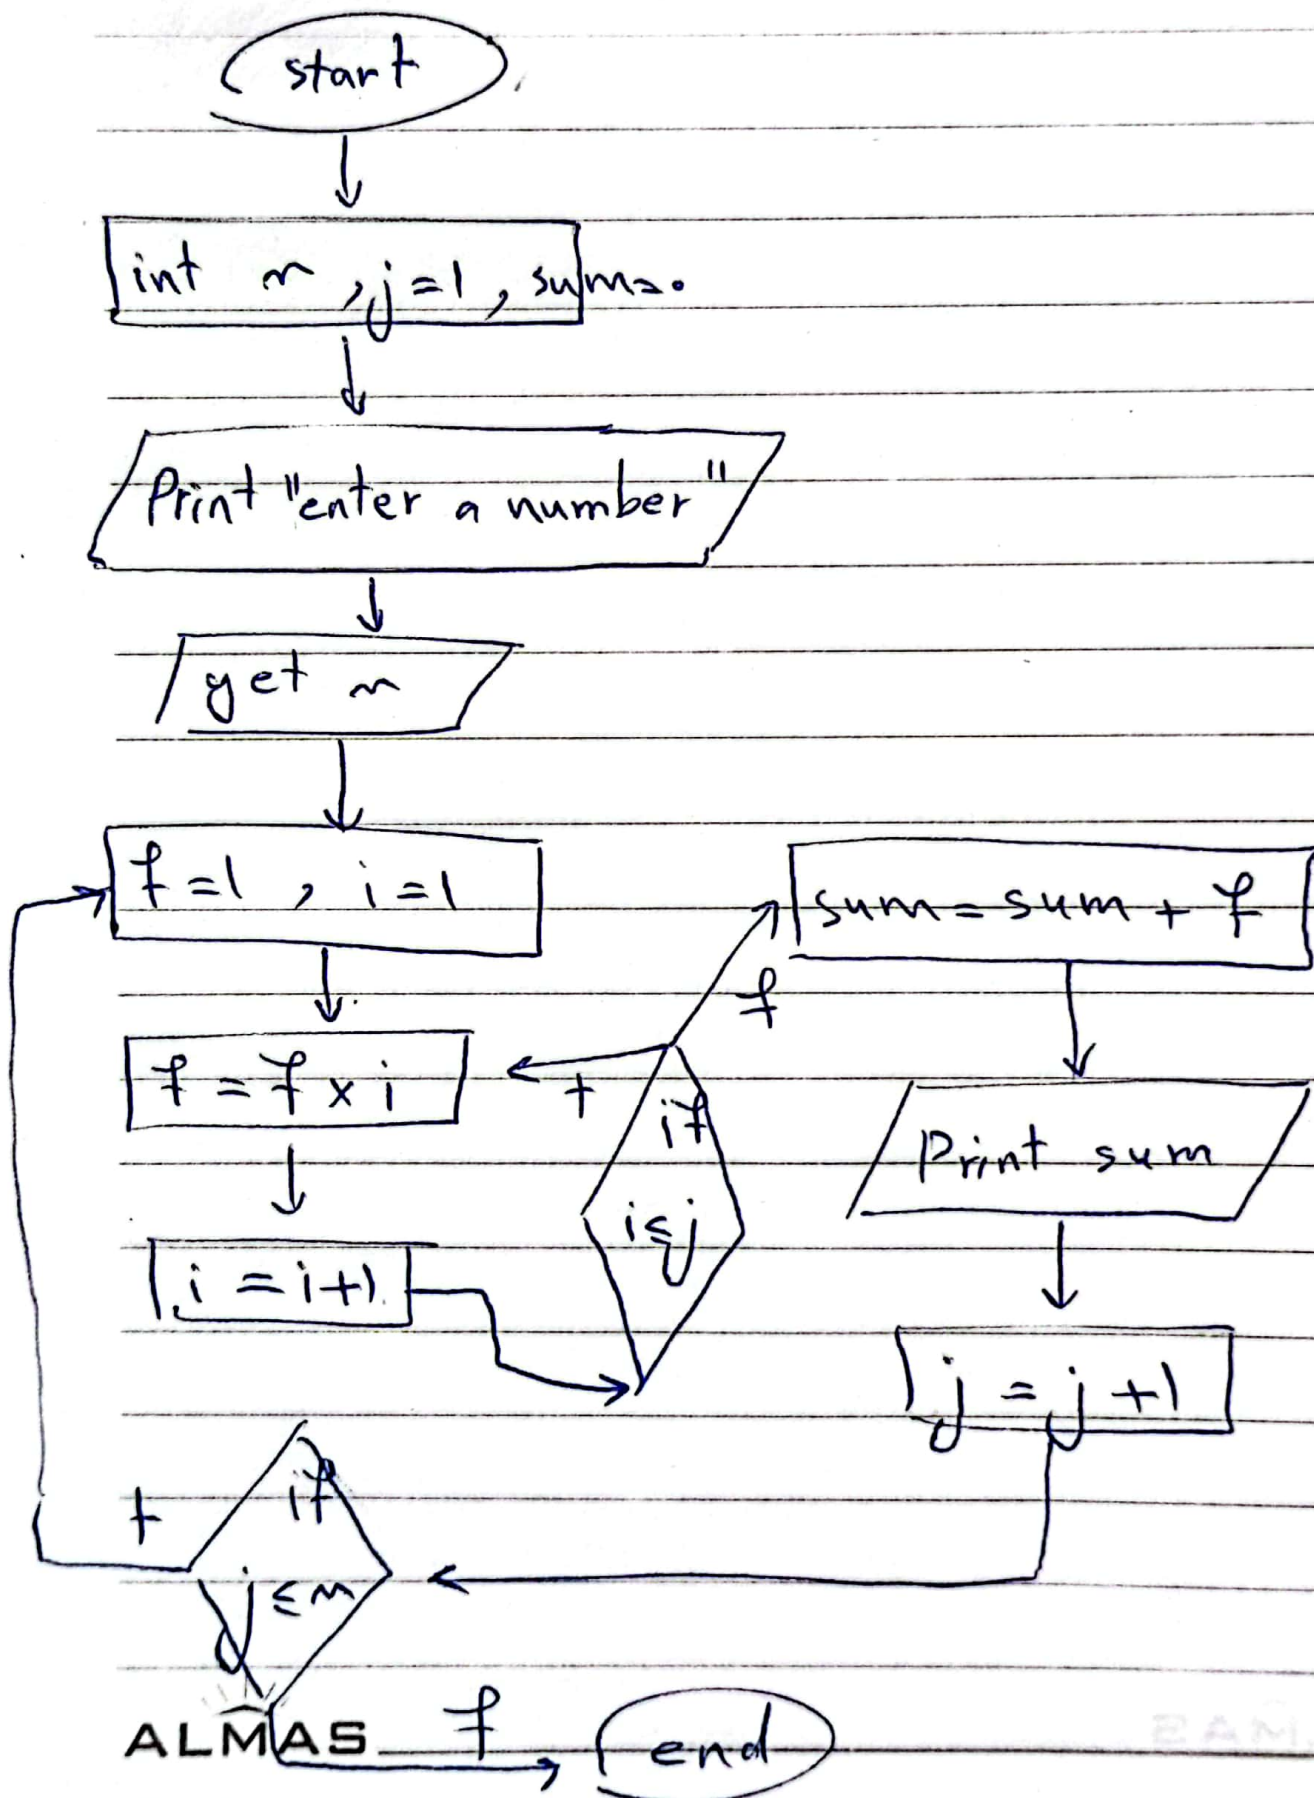 start
int n , j=1 , sum=0
Print "enter a number"
get n
f=1 , i=1
f = f x i
i = i+1
if
i≤j
t
f
sum = sum + f
Print sum
j = j +1
if
j ≤ n
t
f
end
ALMAS